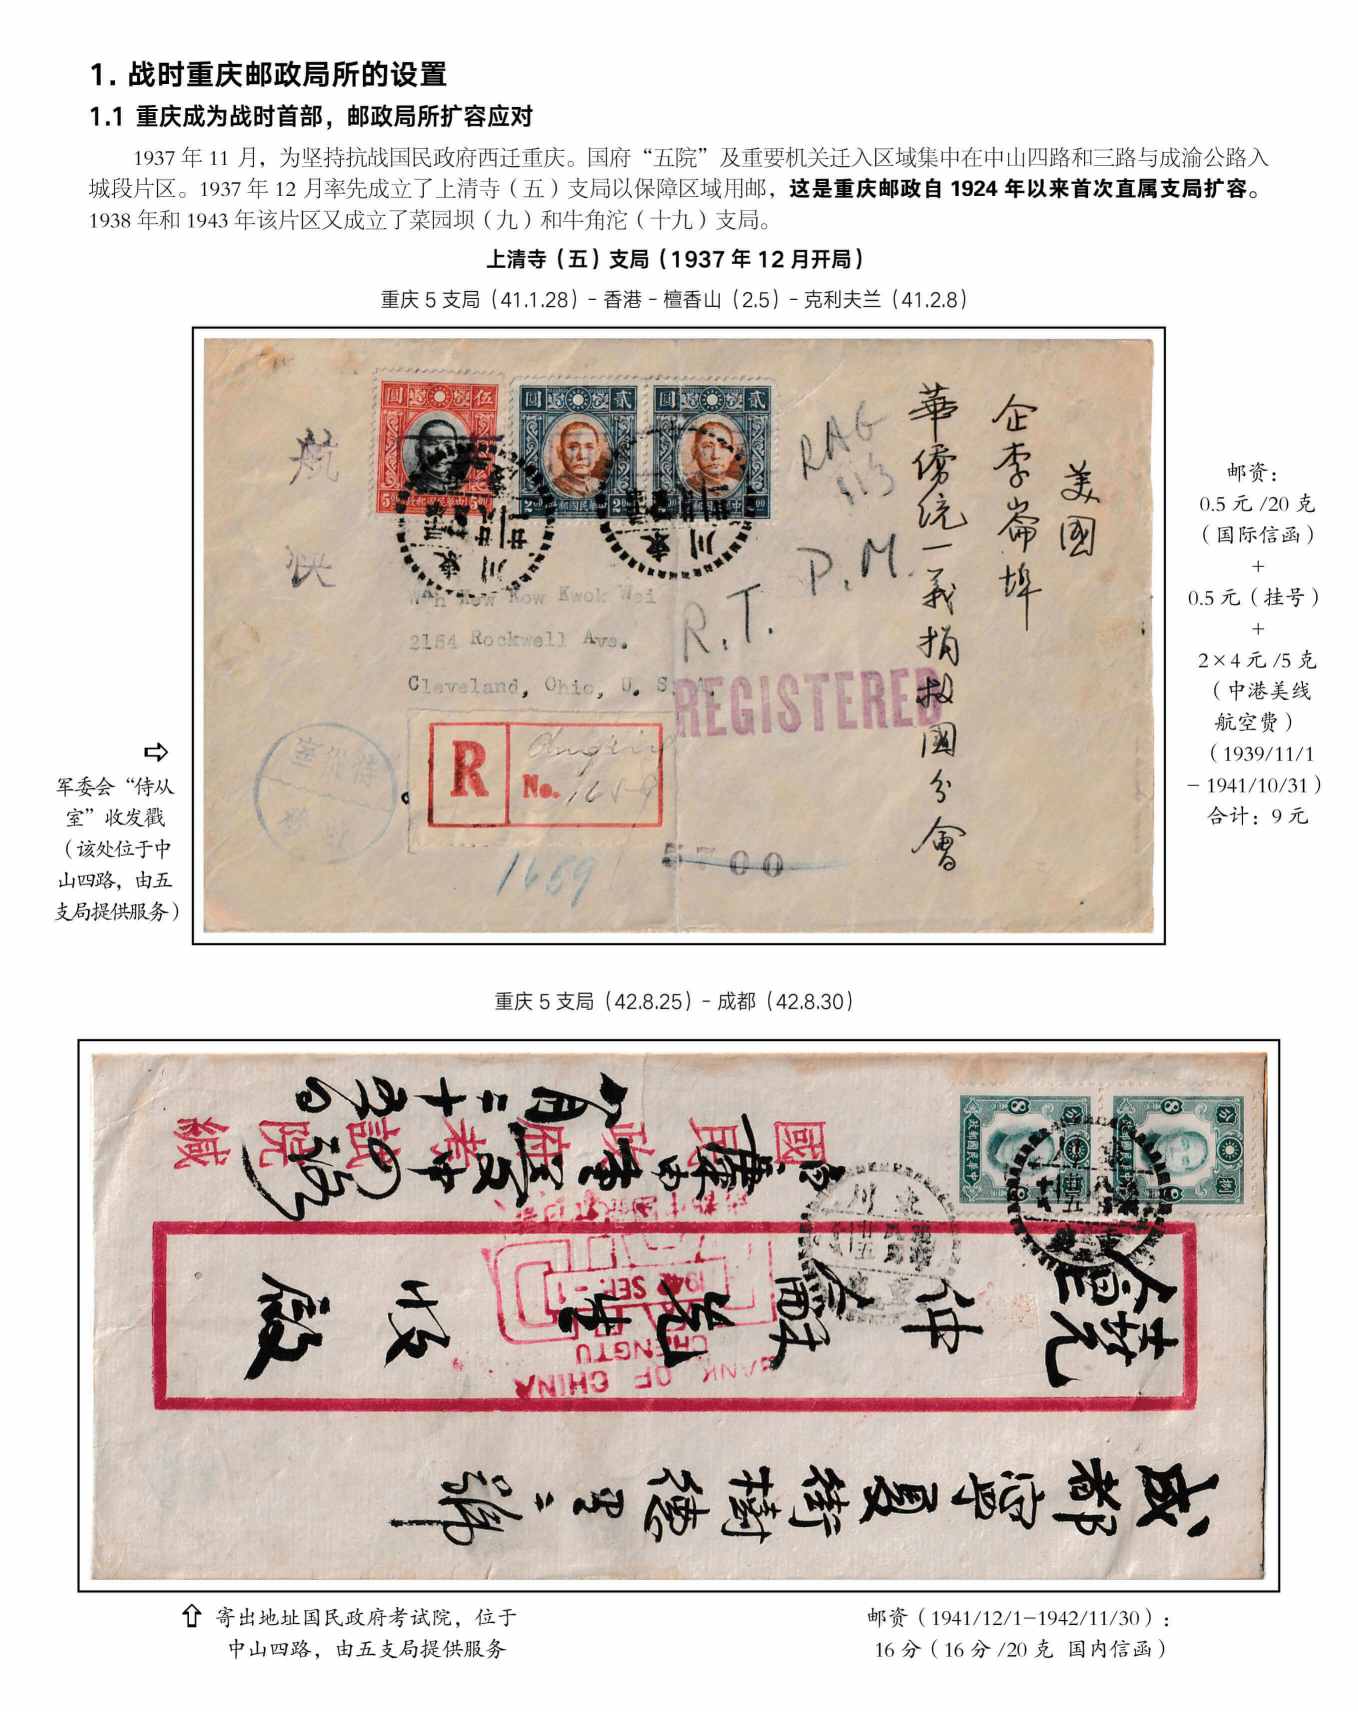 1. 战时重庆邮政局所的设置
1.1 重庆成为战时首部，邮政局所扩容应对
1937 年 11 月，为坚持抗战国民政府西迁重庆。国府“五院”及重要机关迁入区域集中在中山四路和三路与成渝公路入
城段片区。1937 年 12 月率先成立了上清寺（五）支局以保障区域用邮，这是重庆邮政自 1924 年以来首次直属支局扩容。
1938 年和 1943 年该片区又成立了菜园坝（九）和牛角沱（十九）支局。
上清寺（五）支局（1937 年 12 月开局）
重庆 5 支局（41.1.28）- 香港 - 檀香山（2.5）- 克利夫兰（41.2.8）
美國
企李崙埠
華僑統一義捐救國分會
航
快
RAG
813
P.M.
R.T.
Kow Kwok Wei
2164 Rockwell Ave.
Cleveland, Ohio, U. S. A.
REGISTERED
R
No.
1659
5700
邮资：
0.5 元 /20 克
（国际信函）
+
0.5 元（挂号）
+
2×4 元 /5 克
（中港美线
航空费）
（1939/11/1
- 1941/10/31）
合计：9 元
军委会“侍从
室”收发戳
（该处位于中
山四路，由五
支局提供服务）
重庆 5 支局（42.8.25）- 成都（42.8.30）
成都寧夏街樹德里二號
仲 先生 收啟
國民政府考試院緘
八月二十五日
BANK OF CHINA
CHENGTU
寄出地址国民政府考试院，位于
中山四路，由五支局提供服务
邮资（1941/12/1-1942/11/30）：
16 分（16 分 /20 克 国内信函）